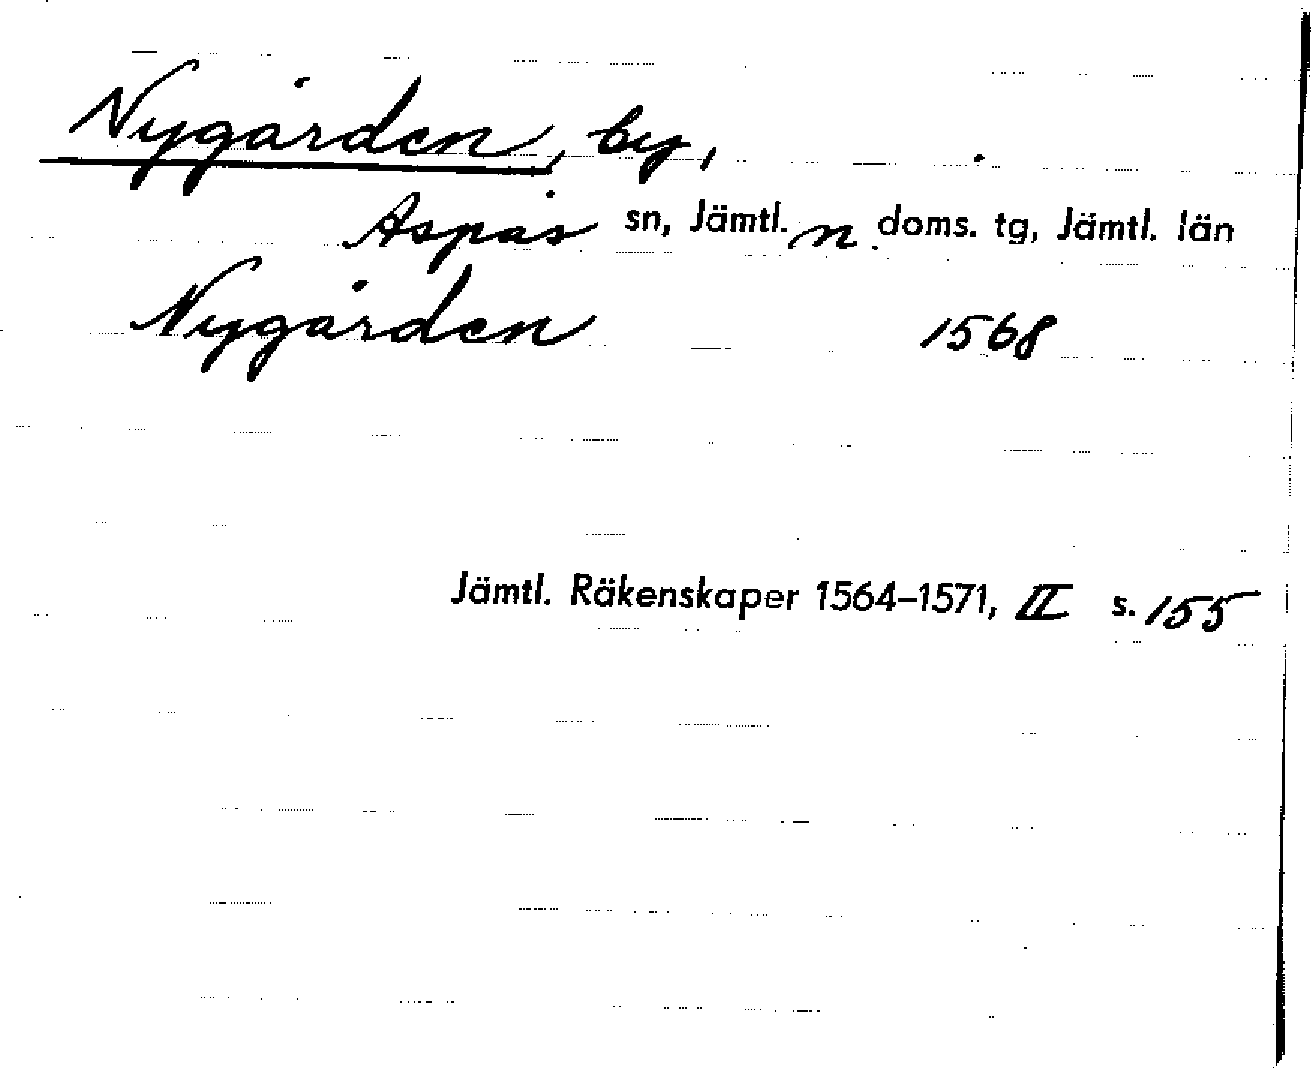 Nygården, by,
Aspås sn, Jämtl. n doms. tg, Jämtl. län
Nygården 1568
Jämtl. Räkenskaper 1564–1571, II s. 155